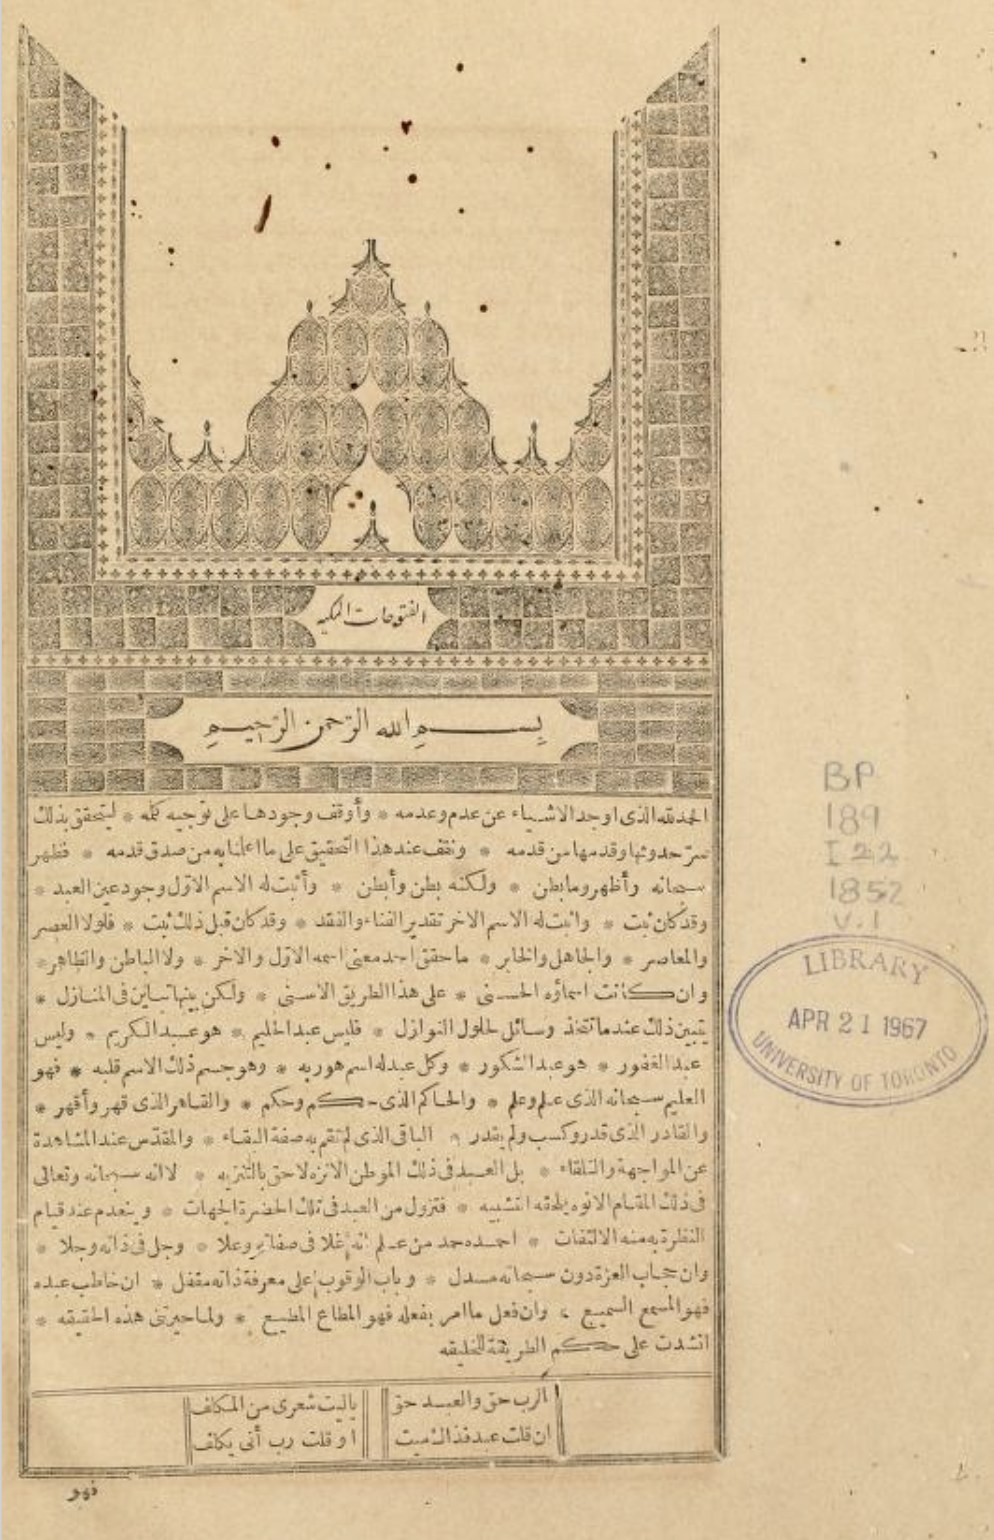 الفتوحات المكيه
بِسْمِ الله الرّحمن الرّحِيمِ
الحمد لله الذى اوجد الاشياء عن عدم وعدمه * وأوقف وجودها على توجيه كلمه * ليتحقق بذلك
سرّ حدوثها وقدمها من قدمه * ونقف عند هذا التحقيق على ما اعلمنا به من صدق قدمه * فظهر
سبحانه وأظهر وما بطن * ولكنه بطن وأبطن * وأثبت له الاسم الاوّل وجود عين العبد *
وقد كان ثبت * واثبت له الاسم الاخر تقدير الفناء والفقد * وقد كان قبل ذلك ثبت * فلولا العصر
والمعاصر * والجاهل والخابر * ما حقق احد معنى اسمه الاوّل والاخر * ولا الباطن والظاهر *
وان كانت اسماؤه الحسنى * على هذا الطريق الاسنى * ولكن بينها تباين فى المنازل *
يتبين ذلك عندما تتخذ وسائل لحلول النوازل * فليس عبد الحليم * هو عبد الكريم * وليس
عبد الغفور * هو عبد الشكور * وكل عبد له اسم هو ربه * وهو جسم ذلك الاسم قلبه * فهو
العليم سبحانه الذى علم وعلم * والحاكم الذى حكم وحكم * والقاهر الذى قهر وأقهر *
والقادر الذى قدر وكسب ولم يقدر * الباقى الذى لم تقم به صفة البقاء * والمقدّس عند المشاهدة
عن المواجهة والتلقاء * بل العبد فى ذلك الموطن الانزه لاحق بالتنزيه * لا انه سبحانه وتعالى
فى ذلك المقام الانوه يلحقه التشبيه * فتزول من العبد فى تلك الحضرة الجهات * وينعدم عند قيام
النظرة به منه الالتفات * احمده حمد من علم انه علا فى صفاته وعلا * وجل فى ذاته وجلا *
وان حجاب العزة دون سبحانه مسدل * وباب الوقوف على معرفة ذاته مقفل * ان خاطب عبده
فهو المسمع السميع * وان فعل ما امر بفعله فهو المطاع المطيع * ولما حيرتنى هذه الحقيقه *
انشدت على حكم الطريقة للخليقه
الرب حق والعبد حق    ياليت شعرى من المكلف
ان قلت عبد فذاك ميت    او قلت رب أنى يكلف
فهو
BP
189
I22
1852
v.1
LIBRARY
APR 21 1967
UNIVERSITY OF TORONTO